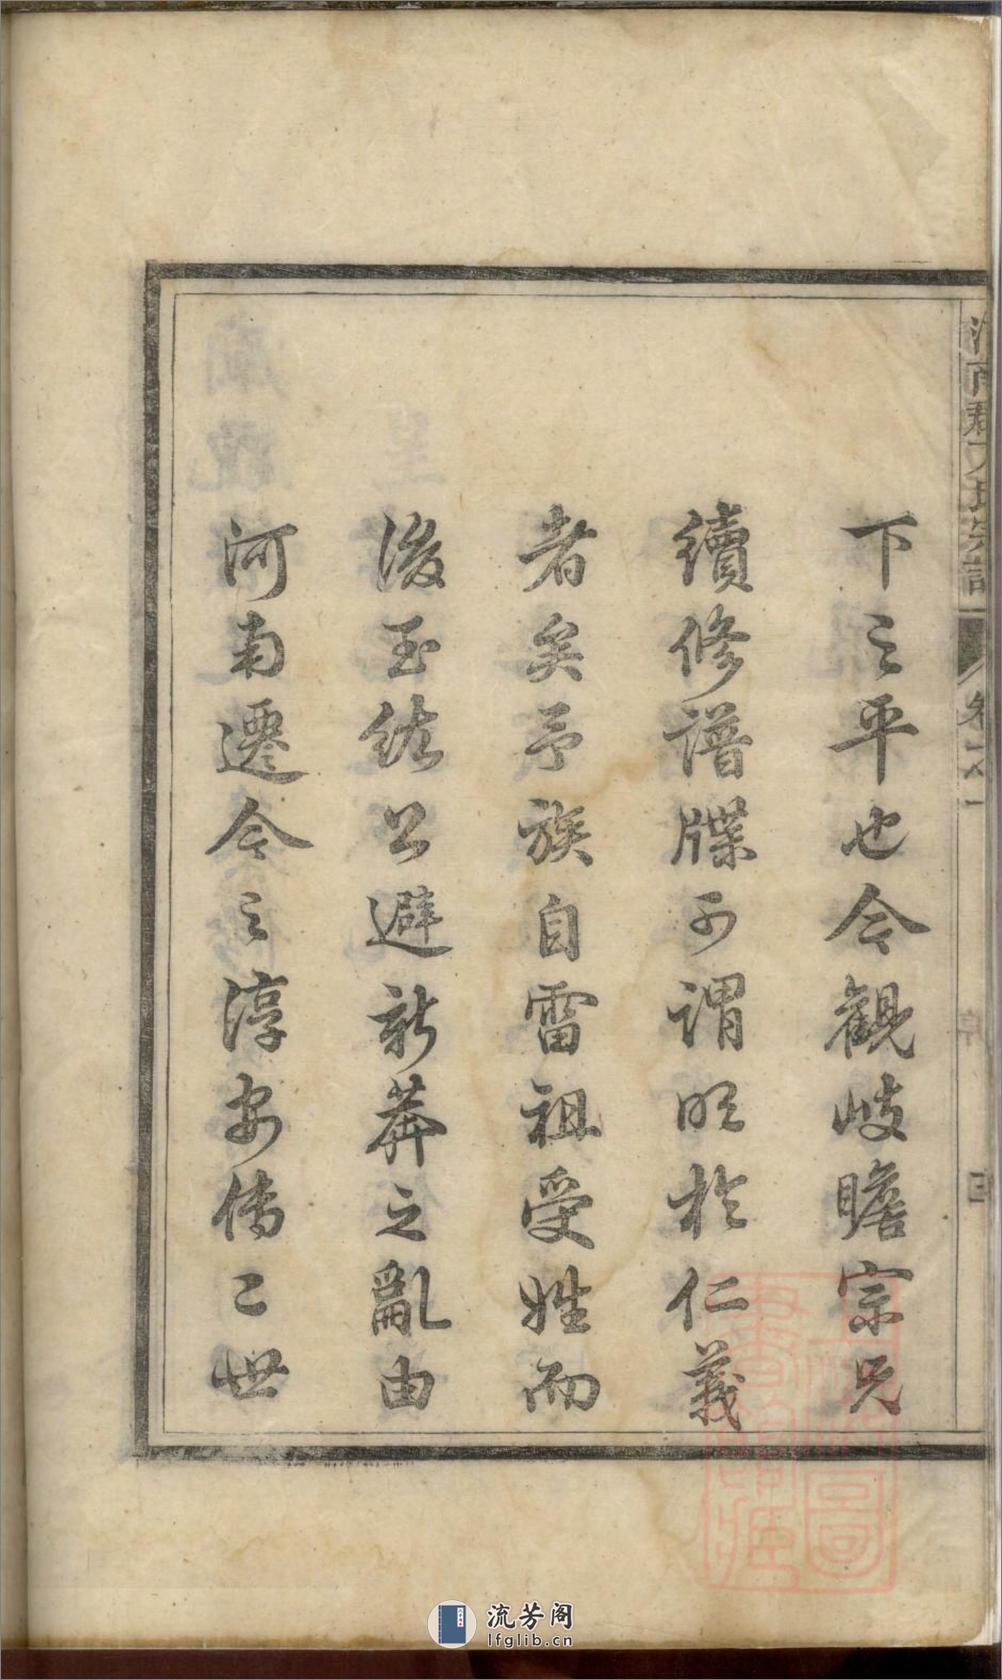 下之平也今觀歧瞻宗兄
續修譜牒可謂明於仁義
者矣予族自雷祖受姓而
後玉佐公避新莽之亂由
河南遷今之淳安傳二世
卷之一
流芳阁
lfglib.cn